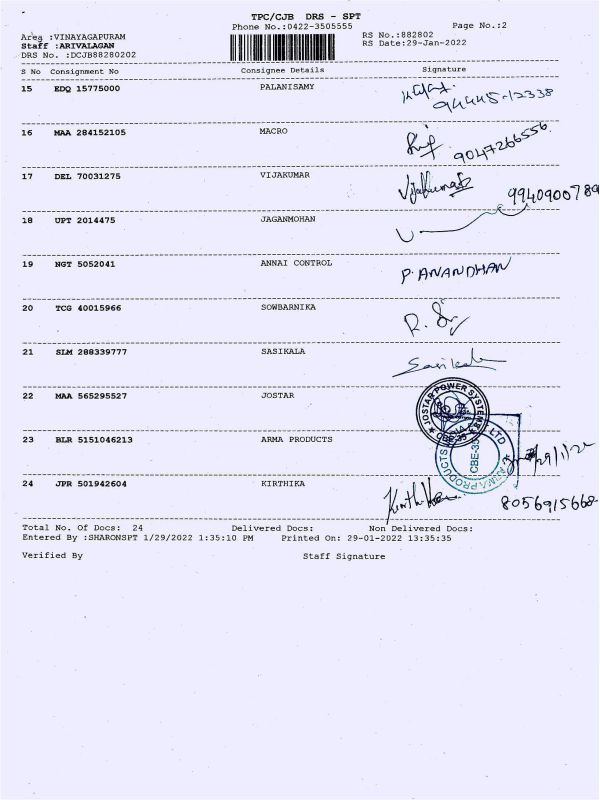 TPC/CJB DRS - SPT
Phone No.:0422-3505555 Page No.:2
Area :VINAYAGAPURAM RS No.:882802
Staff :ARIVALAGAN RS Date:29-Jan-2022
DRS No. :DCJB88280202
S No Consignment No Consignee Details Signature
15 EDQ 15775000 PALANISAMY
94445-12338
16 MAA 284152105 MACRO
9047266556
17 DEL 70031275 VIJAKUMAR Vijakumar
9940900789
18 UPT 2014475 JAGANMOHAN
19 NGT 5052041 ANNAI CONTROL P. ANANDHAN
20 TCG 40015966 SOWBARNIKA R.
21 SLM 288339777 SASIKALA Sasikala
22 MAA 565295527 JOSTAR JOSTAR POWER SYSTEMS CBE-35
23 BLR 5151046213 ARMA PRODUCTS ARMA PRODUCTS LTD CBE-35 29/1/22
24 JPR 501942604 KIRTHIKA 8056915668
Total No. Of Docs: 24 Delivered Docs: Non Delivered Docs:
Entered By :SHARONSPT 1/29/2022 1:35:10 PM Printed On: 29-01-2022 13:35:35
Verified By Staff Signature